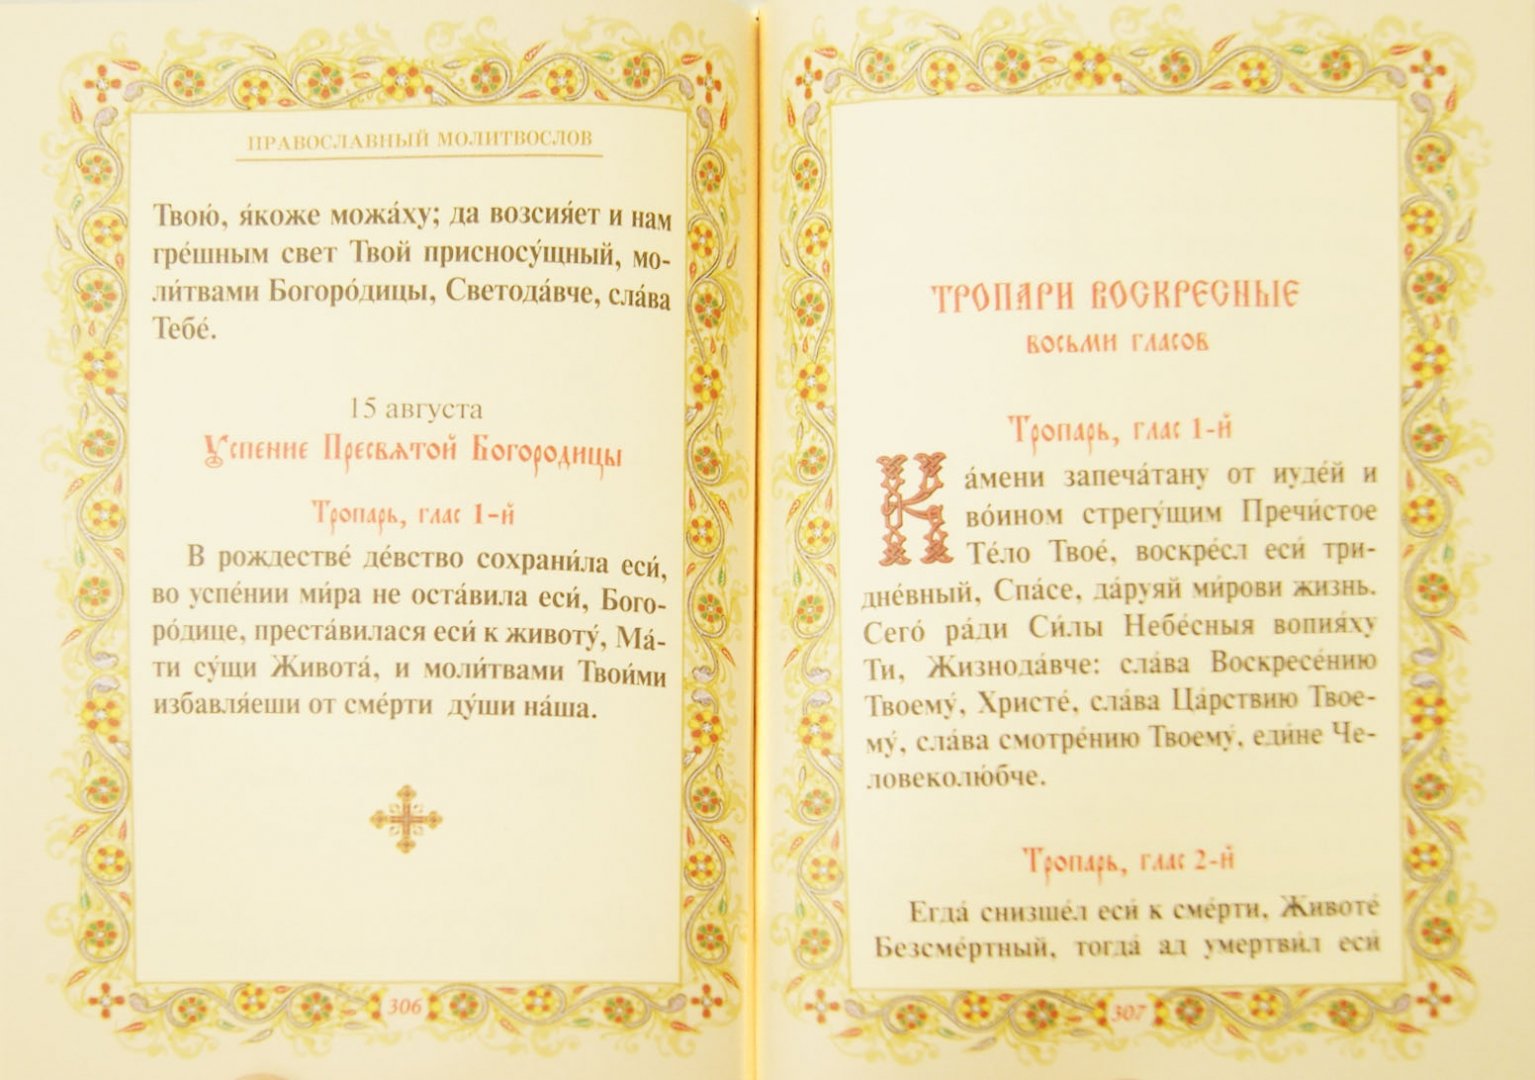 ПРАВОСЛАВНЫЙ МОЛИТВОСЛОВ
Твою́, я́коже можа́ху; да возсия́ет и нам
гре́шным свет Твой присносу́щный, мо-
ли́твами Богоро́дицы, Светода́вче, сла́ва
Тебе́.
15 августа
Успение Пресвѧтой Богородицы
Тропарь, глас 1-й
В рождестве́ де́вство сохрани́ла еси́,
во успе́нии ми́ра не оста́вила еси́, Бого-
ро́дице, преста́вилася еси́ к животу́, Ма́-
ти су́щи Живота́, и моли́твами Твои́ми
избавля́еши от сме́рти ду́ши на́ша.
306
ТРОПАРИ ВОСКРЕСНЫЕ
ВОСЬМИ ГЛАСОВ
Тропарь, глас 1-й
Ка́мени запеча́тану от иуде́й и
во́ином стрегу́щим Пречи́стое
Те́ло Твое́, воскре́сл еси́ три-
дне́вный, Спа́се, да́руяй ми́рови жизнь.
Сего́ ра́ди Си́лы Небе́сныя вопия́ху
Ти, Жизнода́вче: сла́ва Воскресе́нию
Твоему́, Христе́, сла́ва Ца́рствию Твое-
му́, сла́ва смотре́нию Твоему́, еди́не Че-
ловеколю́бче.
Тропарь, глас 2-й
Егда́ снизше́л еси́ к сме́рти, Животе́
Безсме́ртный, тогда́ ад умертви́л еси́
307